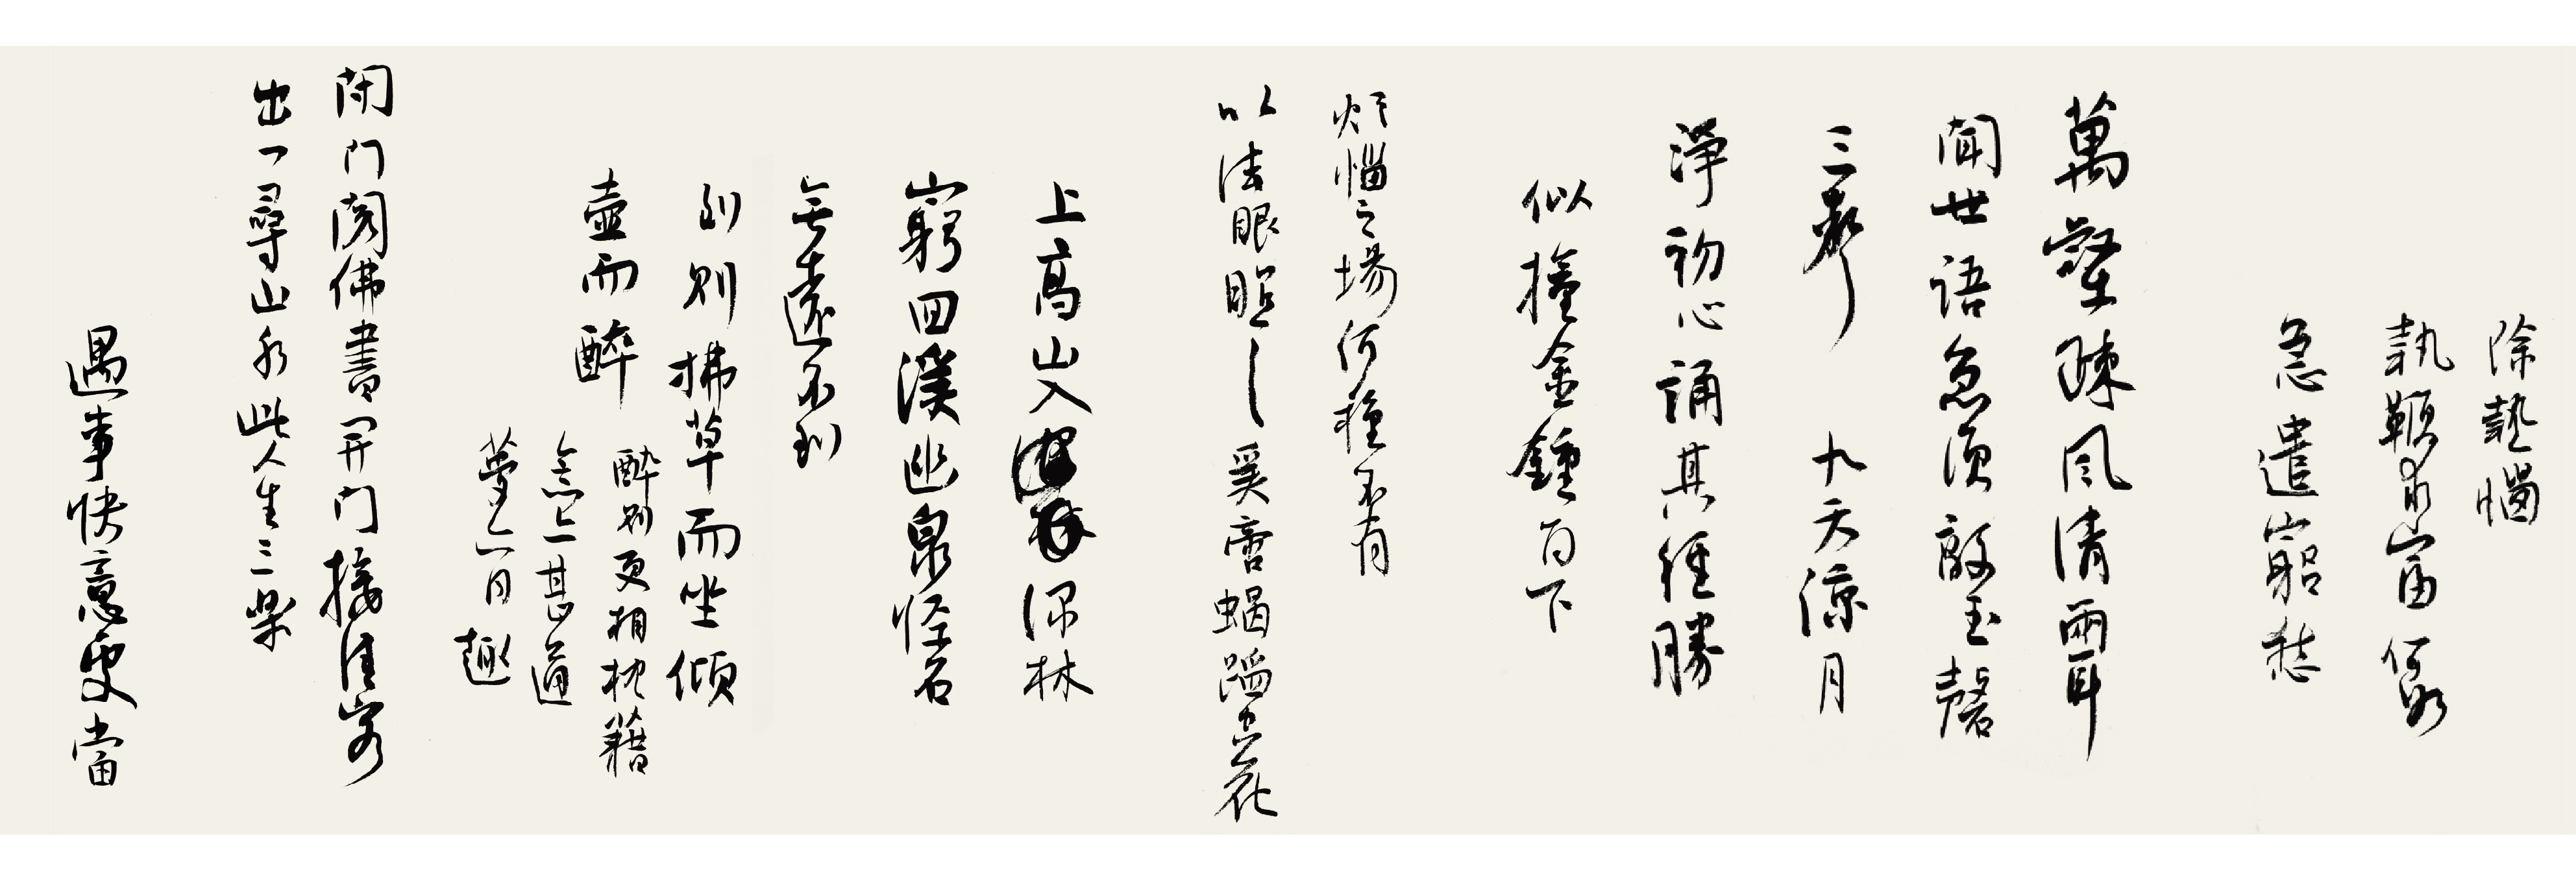 除熱惱
執鞭求富何如
急遣窮愁
萬壑疎風清兩耳
聞世語急須敲玉磬
三聲 九天涼月
淨初心誦其經勝
似撞金鐘百下
煩惱之場何種不有
以法眼照之奚啻蝎蹈空花
上高山入深林
窮回溪幽泉怪石
無遠不到
到則拂草而坐傾
壺而醉
醉則更相枕藉
意亦甚適
夢亦同趣
閉門閱佛書開門接佳客
出門尋山水此人生三樂
遇事快意處當